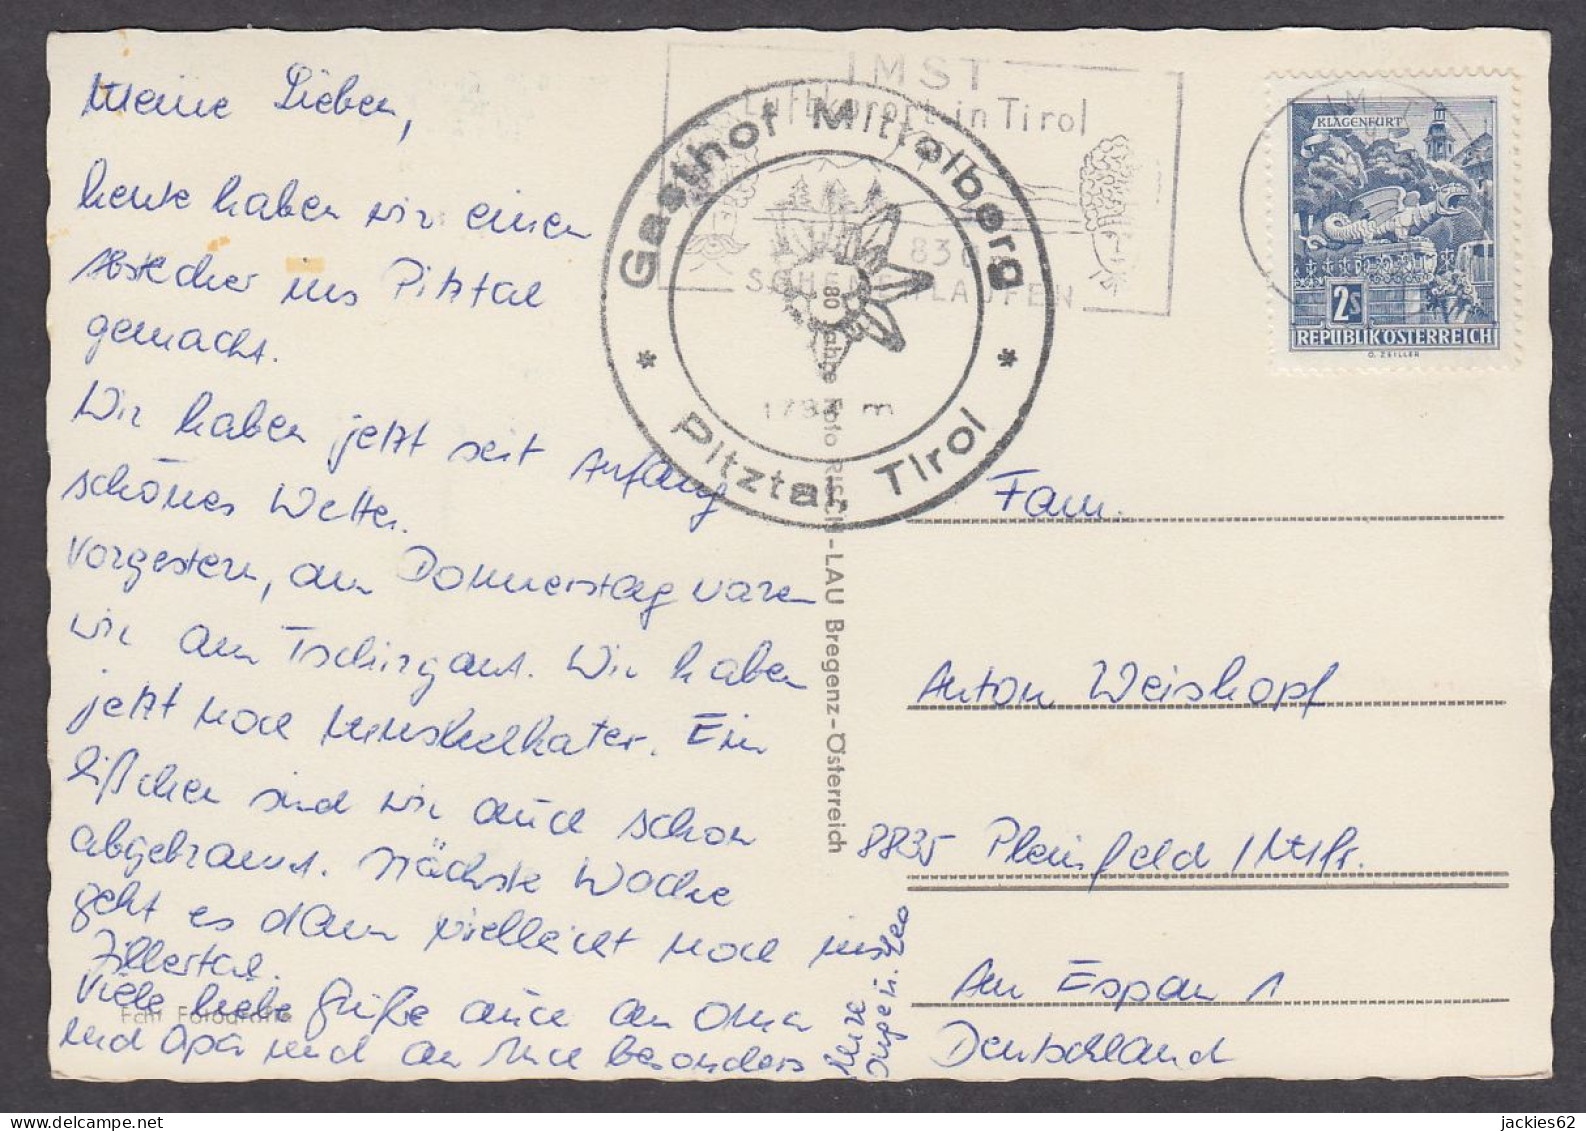 Meine Lieben,
heute haben wir einen
Abstecher ins Pitztal
gemacht.
Wir haben jetzt seit Anfang
schönes Wetter.
Vorgestern, am Donnerstag waren
wir am Tschirgant. Wir haben
jetzt noch Muskelkater. Ein
bißchen sind wir auch schon
abgebrannt. Nächste Woche
geht es dann vielleicht noch ins
Zillertal.
Viele liebe Grüße auch an Oma
und Opa und an besonders
Echt Fotografie
IMST
Luftkurort in Tirol
SCHEMENLAUFEN
Gasthof Mittelberg
* Pitztal Tirol *
80 Jahre Foto RISCH-LAU Bregenz-Österreich
IMST
KLAGENFURT
2S
REPUBLIK ÖSTERREICH
O. ZEILLER
Fam.
Anton Weiskopf
8835 Pleinfeld / Mfr.
Am Espan 1
Deutschland
jackies62